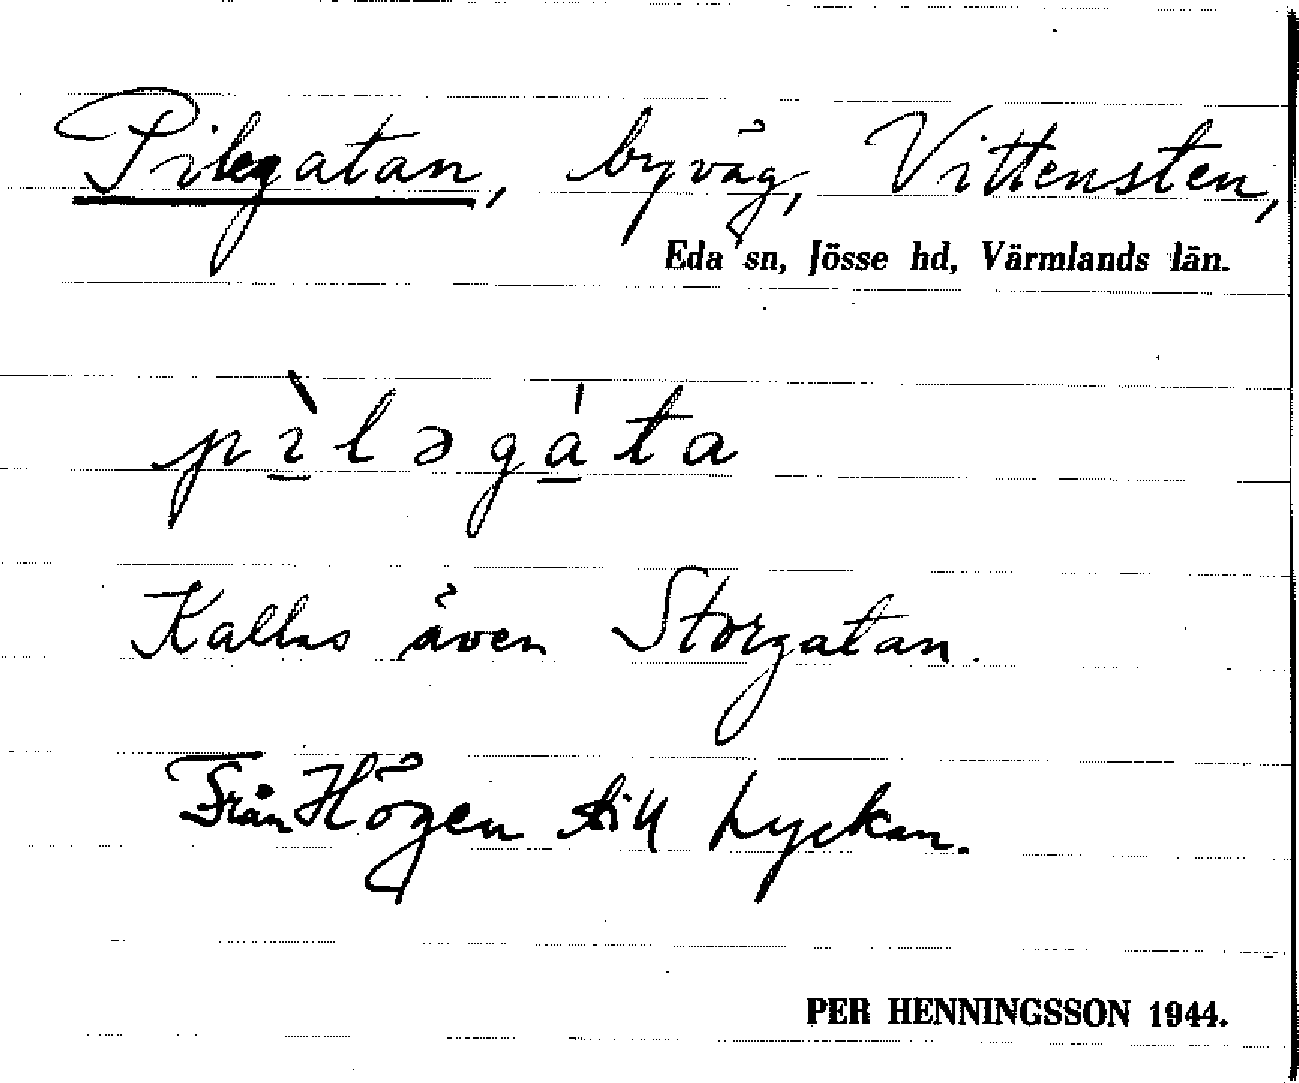 Pilegatan, byväg, Vittensten,
Eda sn, Jösse hd, Värmlands län.
pı̀ləgáta
Kallas även Storgatan.
Från Högen till Lyckan.
PER HENNINGSSON 1944.